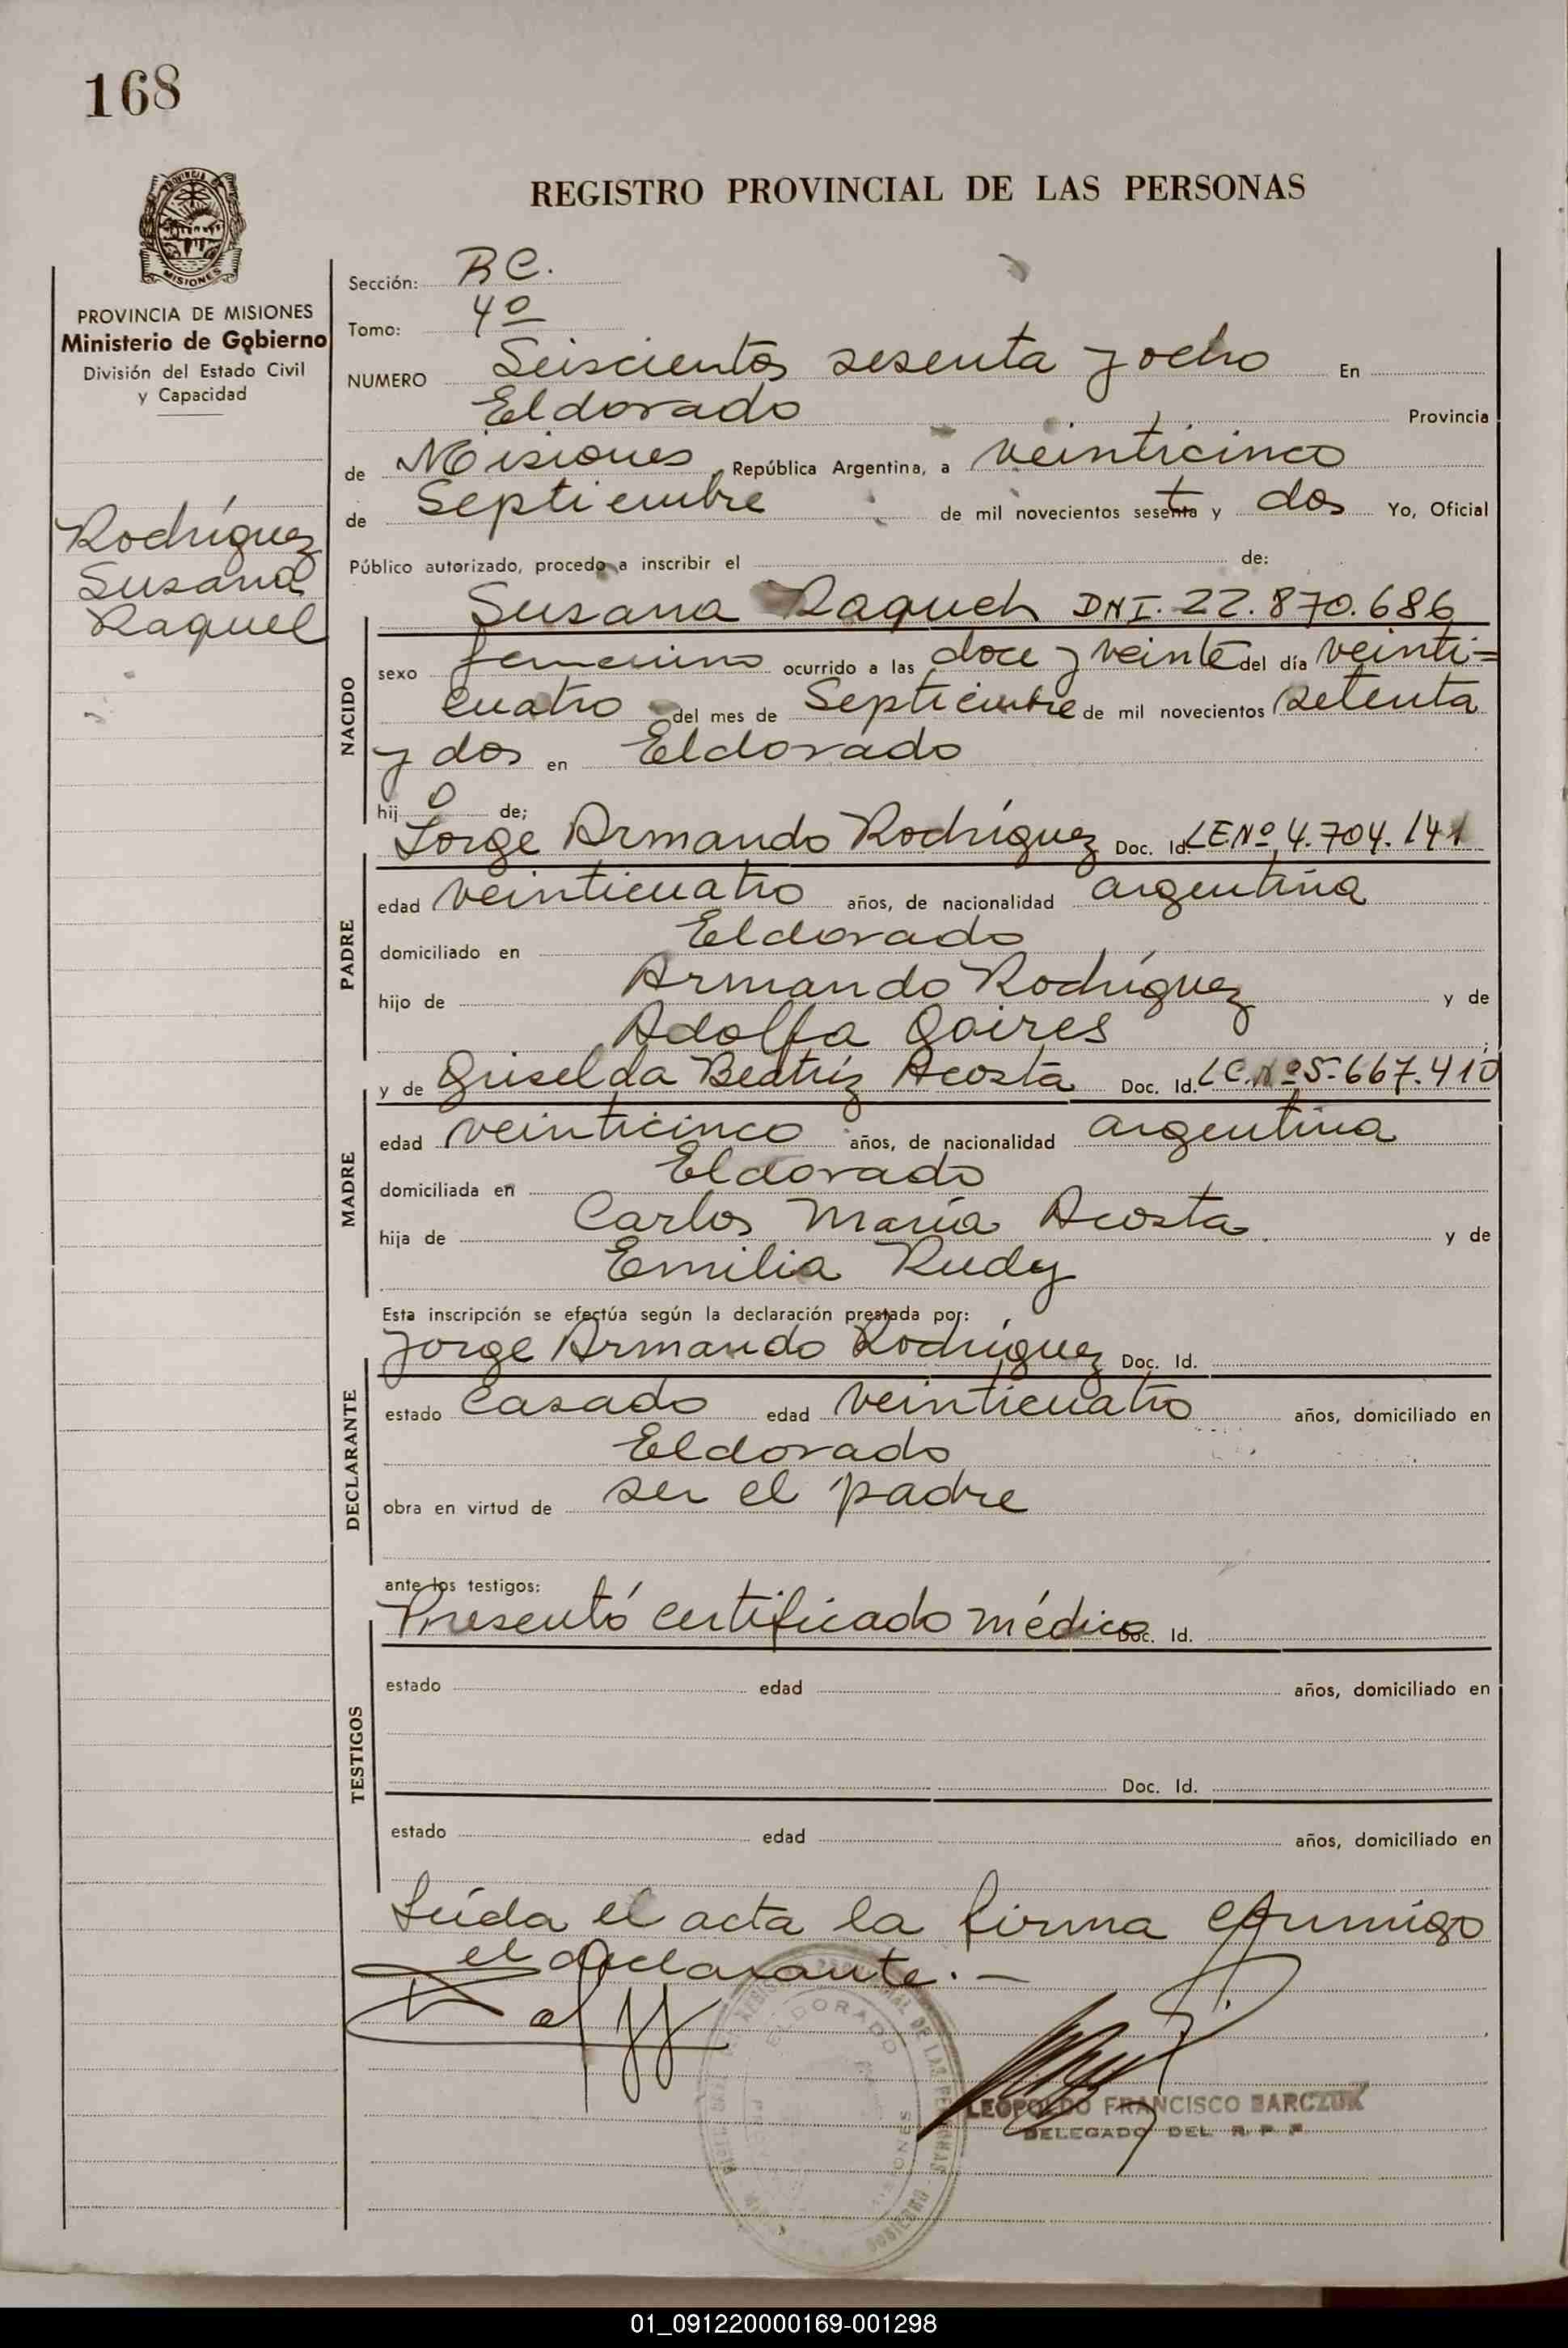 168
REGISTRO PROVINCIAL DE LAS PERSONAS
PROVINCIA DE MISIONES
Ministerio de Gobierno
División del Estado Civil
y Capacidad
Rodríguez
Susana
Raquel
Sección: R C.
Tomo: 4º
NUMERO Seiscientos sesenta y ocho En
Eldorado Provincia
de Misiones, República Argentina, a veinticinco
de Septiembre de mil novecientos setenta y dos Yo, Oficial
Público autorizado, procedo a inscribir el de:
NACIDO
Susana Raquel DNI. 22.870.686
sexo femenino ocurrido a las doce y veinte del día veinti=
cuatro del mes de Septiembre de mil novecientos setenta
y dos en Eldorado
hijo de;
PADRE
Jorge Armando Rodríguez Doc. Id. LE Nº 4.704.141
edad veinticuatro años, de nacionalidad argentina
domiciliado en Eldorado
hijo de Armando Rodríguez y de
Adolfa
MADRE
y de Griselda Beatríz Acosta Doc. Id. LC. Nº 5.667.410
edad veinticinco años, de nacionalidad argentina
domiciliada en Eldorado
hija de Carlos María Acosta y de
Emilia Rudy
Esta inscripción se efectúa según la declaración prestada por:
DECLARANTE
Jorge Armando Rodríguez Doc. Id.
estado casado edad veinticuatro años, domiciliado en
Eldorado
obra en virtud de ser el padre
ante los testigos:
TESTIGOS
Presentó certificado médico Doc. Id.
estado edad años, domiciliado en
Doc. Id.
estado edad años, domiciliado en
Leída el acta la firma conmigo
el declarante. —
ELDORADO
LEOPOLDO FRANCISCO BARCZUK
DELEGADO DEL R. P. P.
01_091220000169-001298